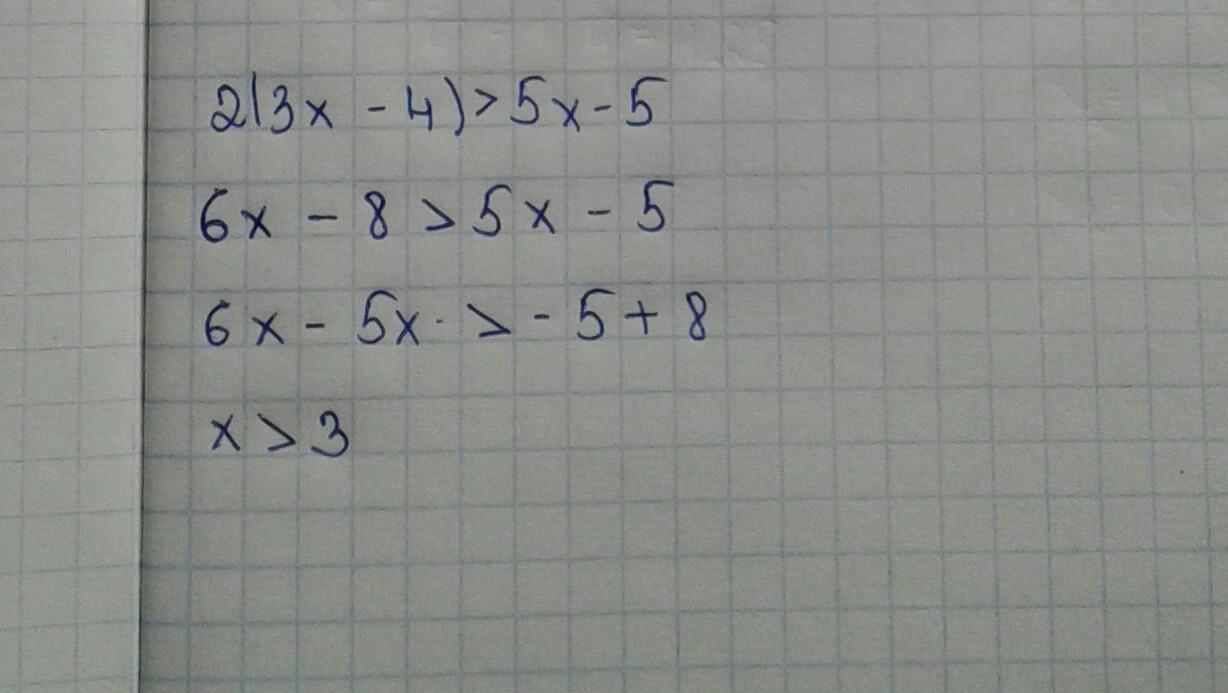 2(3x - 4) > 5x - 5
6x - 8 > 5x - 5
6x - 5x > - 5 + 8
x > 3